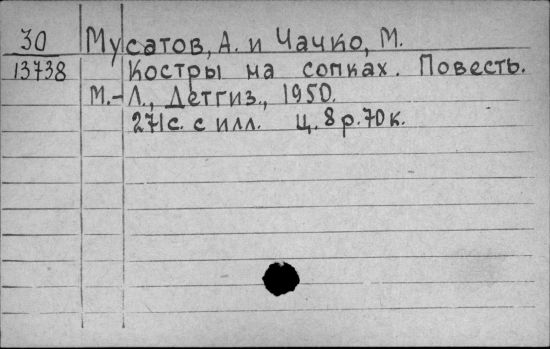 30 Мусатов, А. и Чачко, М.
13738 Костры на сопках. Повесть.
М.-Л., Детгиз., 1950.
271с. с илл. Ц. 8 р. 70 к.